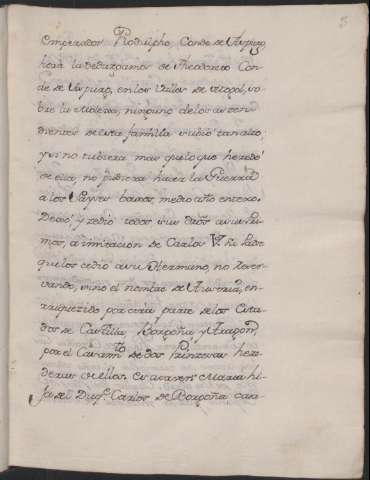 3
Emperador Rodulpho, Conde de Auspurg
hora la deduzgamos de Theodorico Con
de de Auspurg, en los Valles de
bre la Mosena, ninguno de los ascen
dientes de esta familia subió tan alto;
y si no tubiera mas que lo que heredó
de ella, no pudiera hacer la Guerra
a los Payses baxos, medio año entero.
Dexó, y cedió todos sus dros a sus Her
mos, a imitación de Carlos V. su Padre
que los cedió a su Hermano, no reser
vando, sino el nombre de Austria, en
rriquezido por otra parte de los Esta
dos de Castilla, Borgoña y Aragon,
por el Casamto. de dos Princesas here
deras de ellos. Es a saver: Maria hi
ja del Duqe. Carlos de Borgoña cas